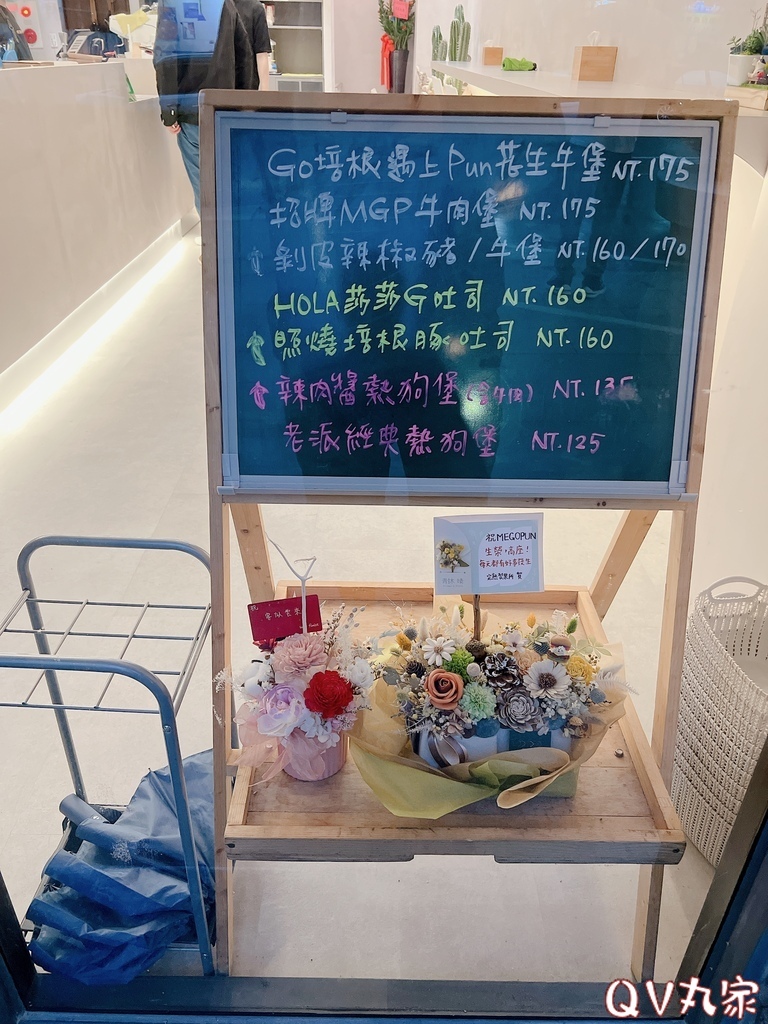 Go培根遇上Pun花生牛堡 NT.175
招牌MGP牛肉堡 NT.175
剝皮辣椒豬/牛堡 NT.160/170
HOLA莎莎G吐司 NT.160
照燒培根豚吐司 NT.160
辣肉醬熱狗堡(含牛肉) NT.135
老派經典熱狗堡 NT.125
祝MEGOPUN
生榮,高座!
每天都有好多客生
賀
QV丸家